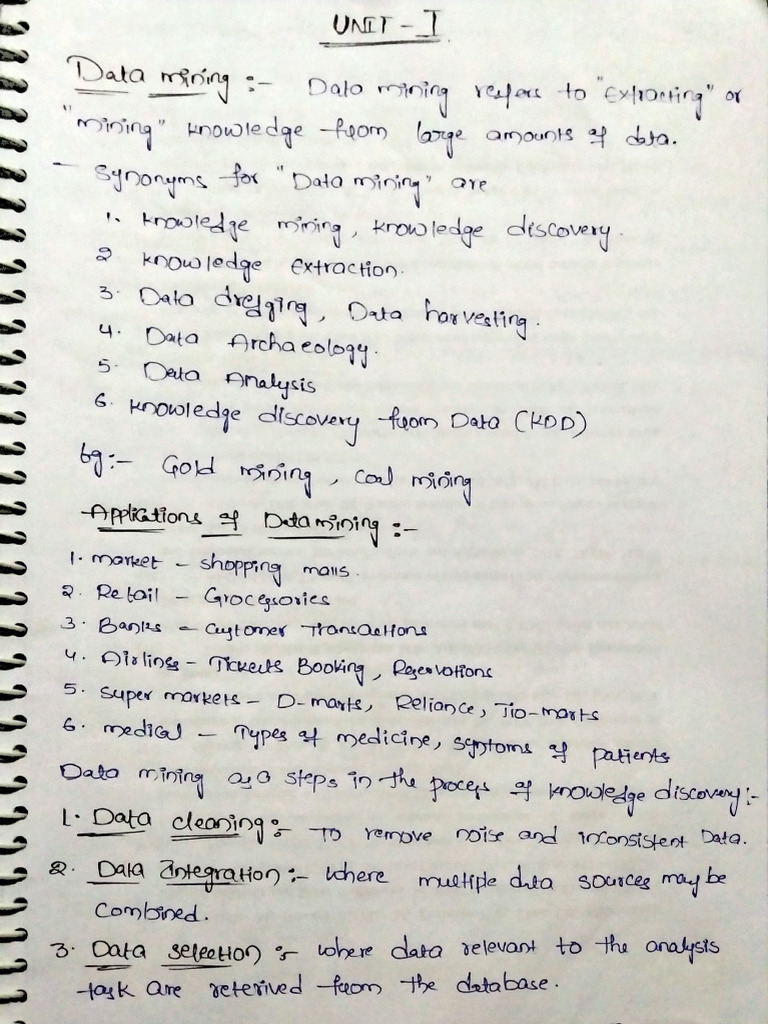 UNIT - I
Data mining :- Data mining refers to "Extracting" or
"mining" knowledge from large amounts of data.
- Synonyms for "Data mining" are
1. Knowledge mining, Knowledge discovery.
2 Knowledge Extraction.
3. Data dredging, Data harvesting.
4. Data Archaeology.
5. Data Analysis
6. Knowledge discovery from Data (KDD)
Eg:- Gold mining, coal mining
Applications of Data mining :-
1. market - shopping malls.
2. Retail - Grocessories
3. Banks - Customer Transactions
4. Airlines - Tickects Booking, Reservations
5. Super markets - D-marts, Reliance, Jio-marts
6. medical - Types of medicine, symtoms of patients
Data mining as a steps in the process of knowledge discovery:-
1. Data cleaning :- To remove noise and inconsistent Data.
2. Data Integration :- Where multiple data sources may be
Combined.
3. Data selection :- where data relevant to the analysis
task are reterived from the database.